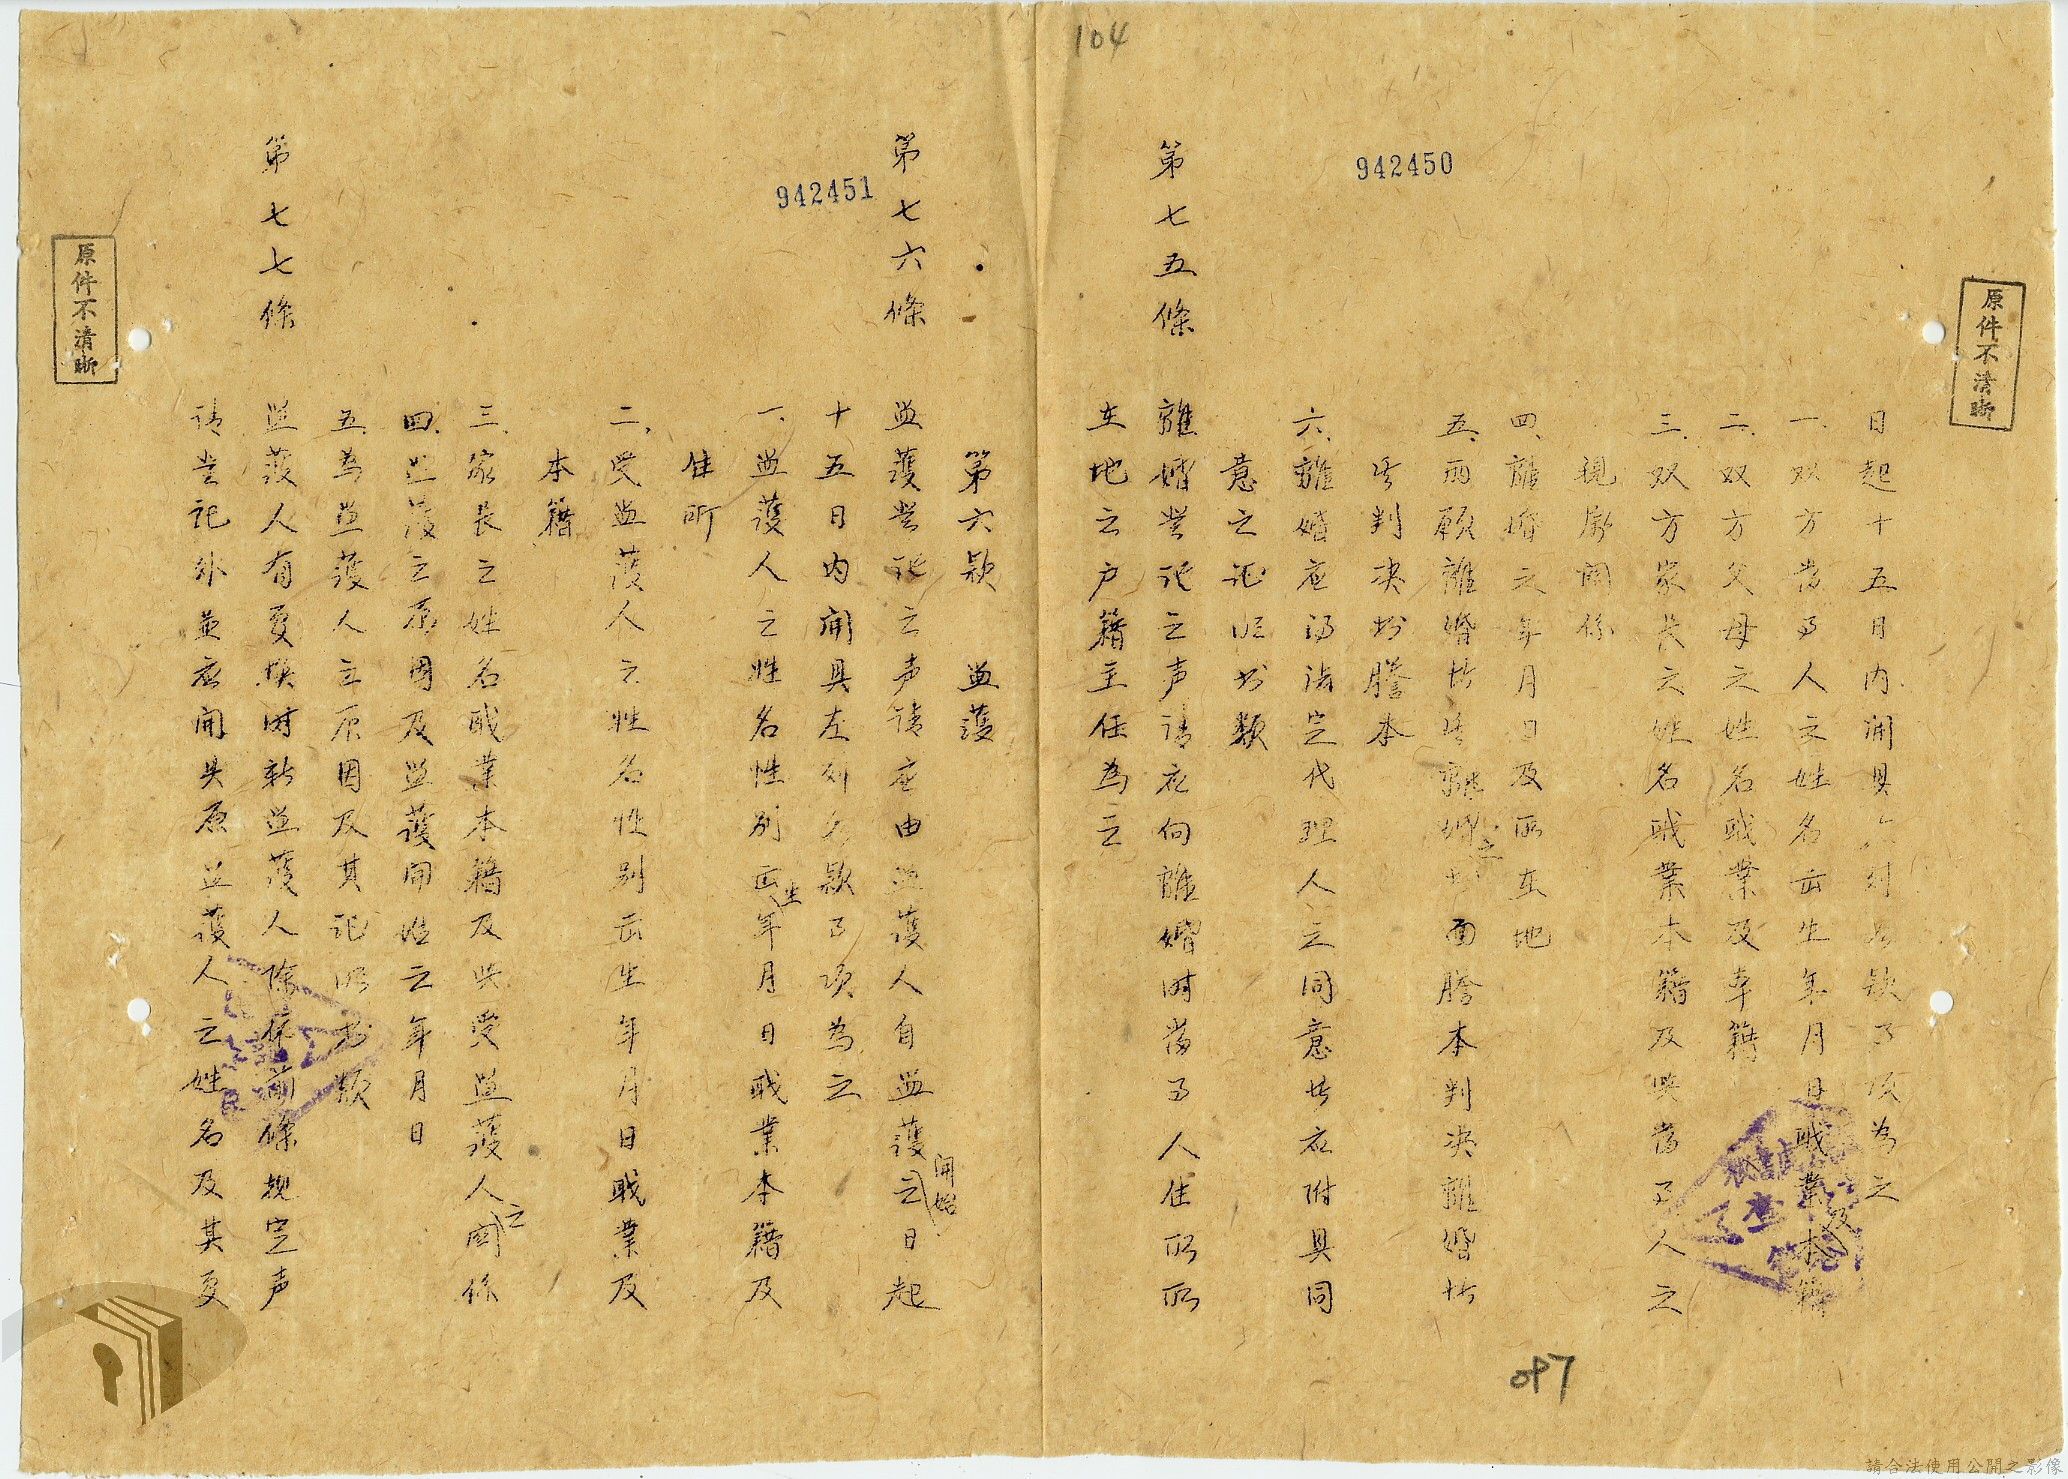 104
942450
原件不清晰
日起十五日内開具左列各款事項為之
一、双方當事人之姓名出生年月日職業及本籍
二、双方父母之姓名職業及本籍
三、双方家長之姓名職業本籍及與當事人之
親屬関係
四、離婚之年月日及所在地
五、両願離婚者其離婚之書面謄本判決離婚者
其判決書謄本
六、離婚應得法定代理人之同意者应附具同
意之証明書類
第七五條 離婚登記之声請应向離婚時當事人住所所
在地之户籍主任為之
097
942451
第六款 监護
第七六條 监護登記之声請应由监護人自监護開始之日起
十五日内開具左列各款事項為之
一、监護人之姓名性别出生年月日職業本籍及
住所
二、受监護人之姓名性别出生年月日職業及
本籍
三、家長之姓名職業本籍及與受监護人之関係
四、监護之原因及监護開始之年月日
五、為监護人之原因及其証明書類
第七七條 监護人有更換時新监護人除依前條規定声
請登記外並应開具原监護人之姓名及其更
原件不清晰
請合法使用公開之影像